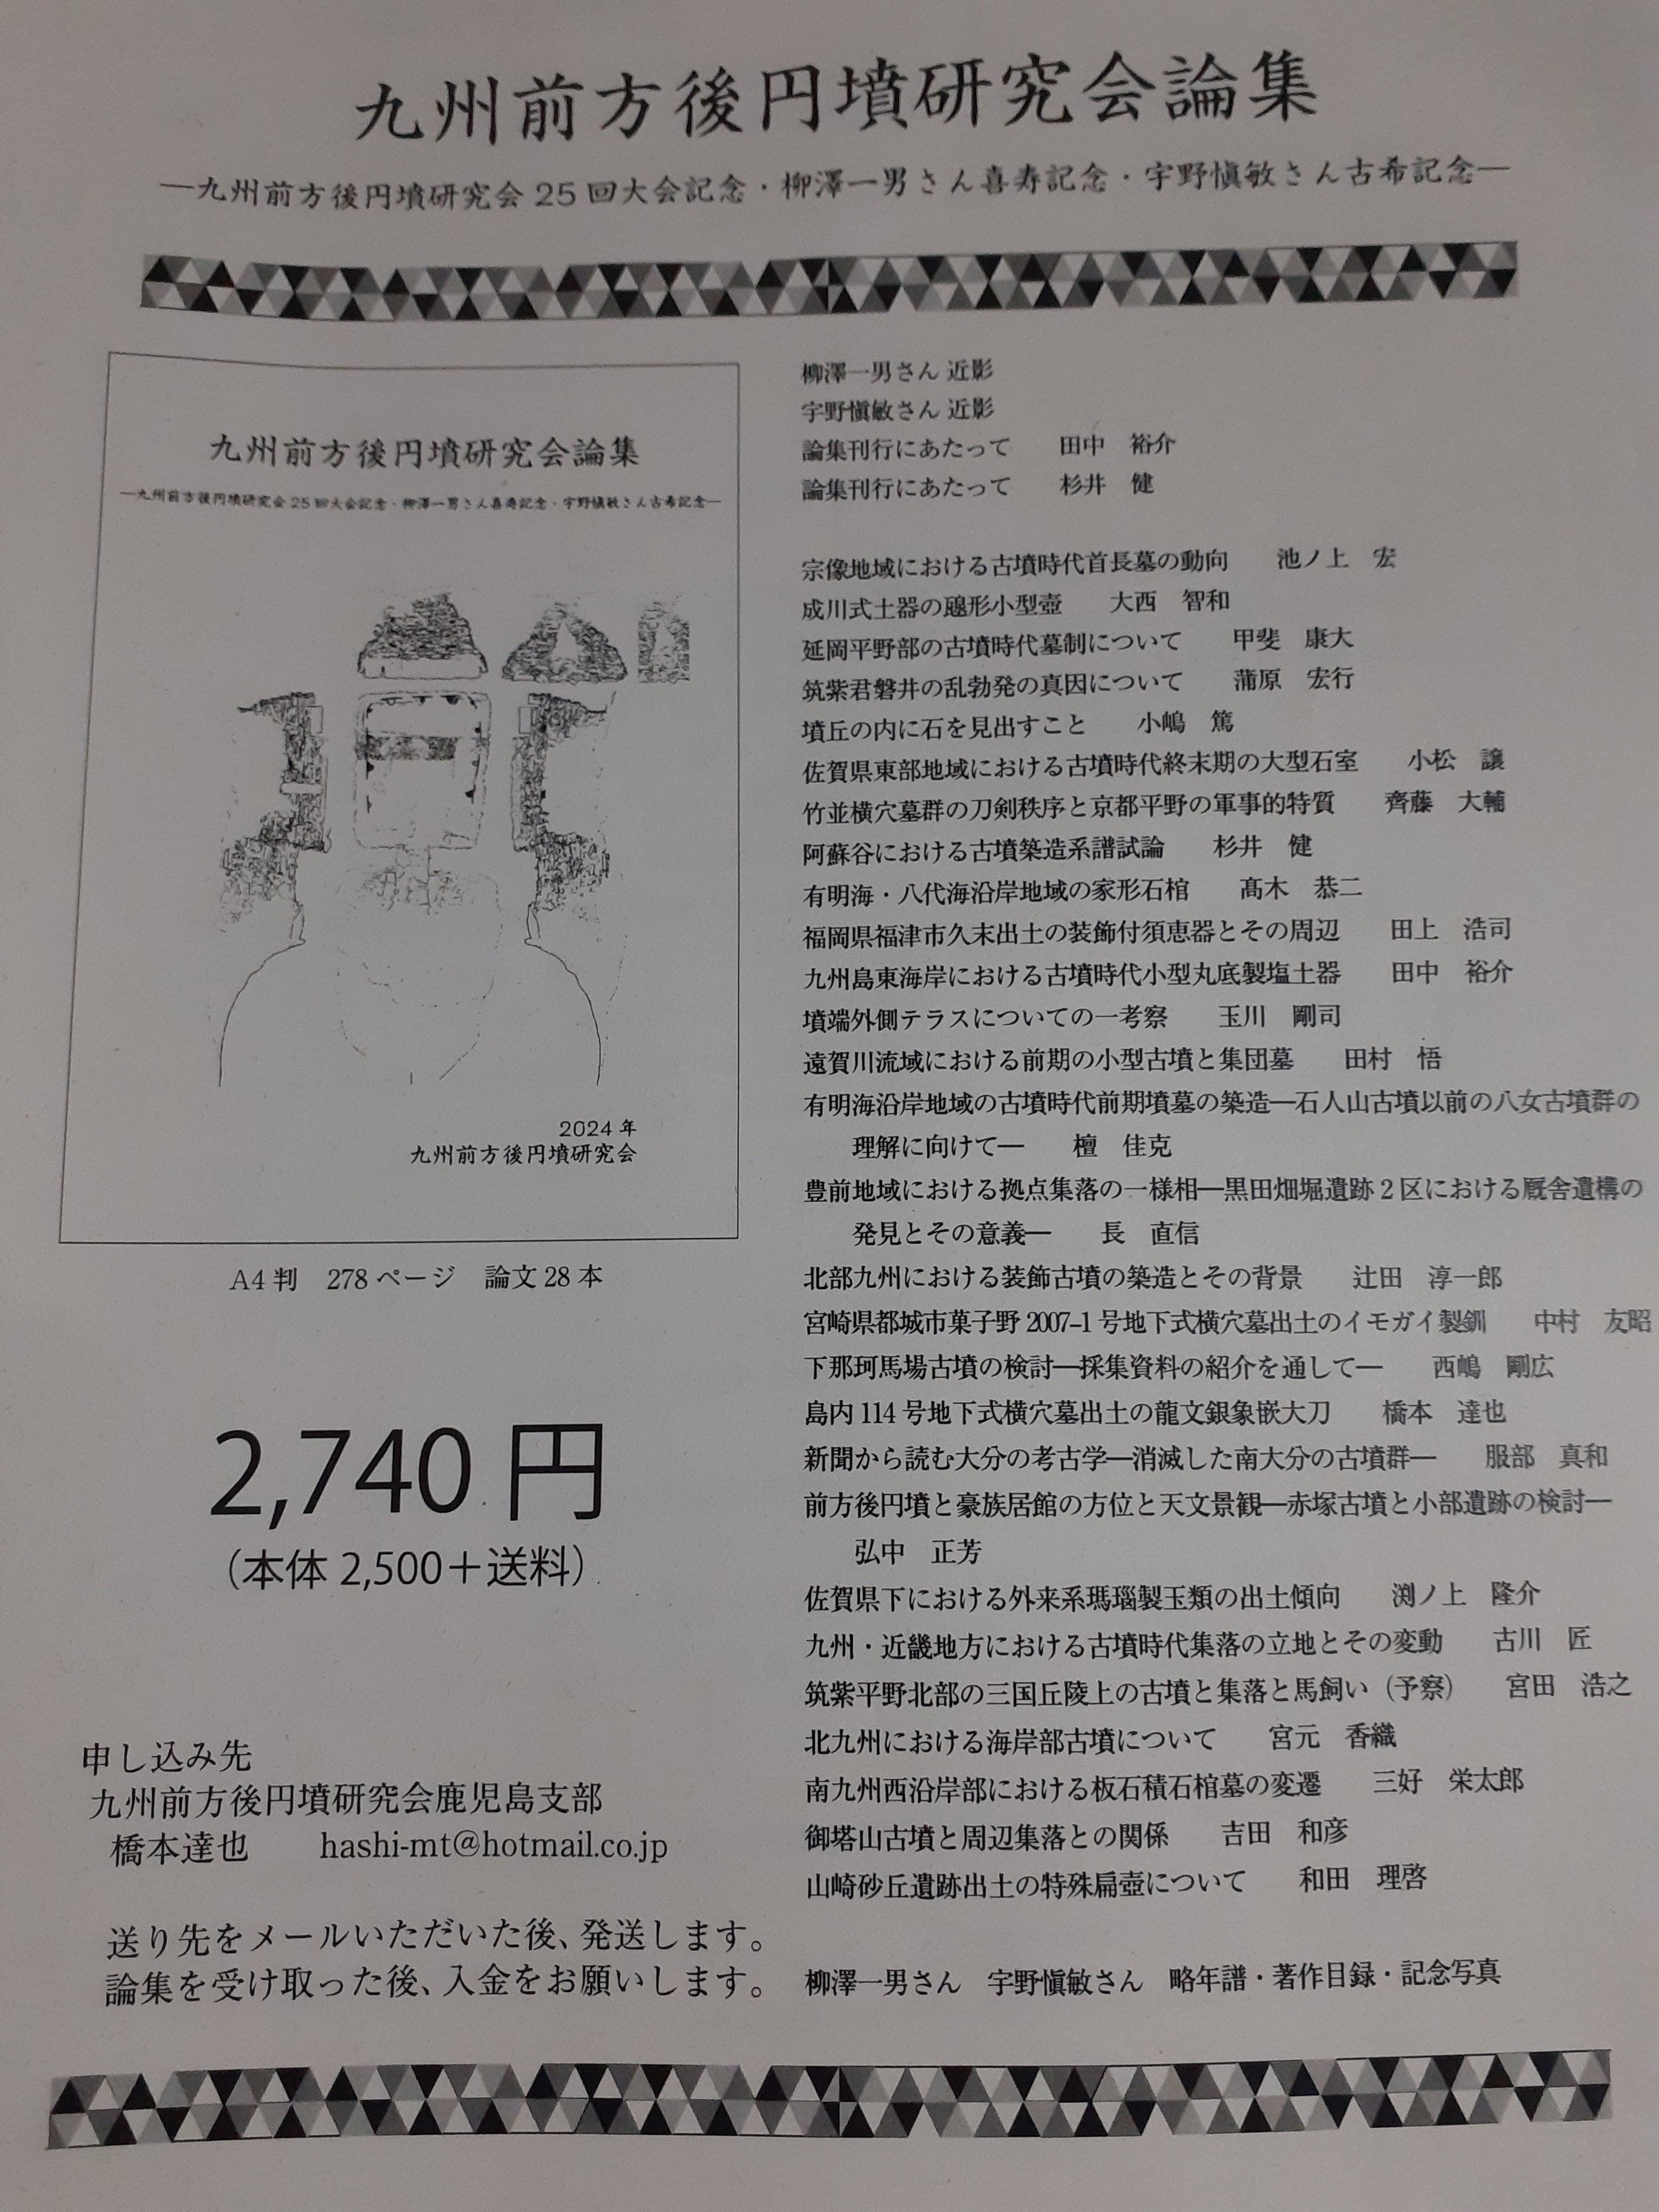 九州前方後円墳研究会論集
―九州前方後円墳研究会 25 回大会記念・柳澤一男さん喜寿記念・宇野愼敏さん古希記念―
九州前方後円墳研究会論集
―九州前方後円墳研究会 25 回大会記念・柳澤一男さん喜寿記念・宇野愼敏さん古希記念―
2024 年
九州前方後円墳研究会
A4 判　278 ページ　論文 28 本
2,740 円
（本体 2,500＋送料）
申し込み先
九州前方後円墳研究会鹿児島支部
橋本達也　　hashi-mt@hotmail.co.jp
送り先をメールいただいた後、発送します。
論集を受け取った後、入金をお願いします。
柳澤一男さん 近影
宇野愼敏さん 近影
論集刊行にあたって　　田中　裕介
論集刊行にあたって　　杉井　健
宗像地域における古墳時代首長墓の動向　　池ノ上　宏
成川式土器の𤭯形小型壺　　大西　智和
延岡平野部の古墳時代墓制について　　甲斐　康大
筑紫君磐井の乱勃発の真因について　　蒲原　宏行
墳丘の内に石を見出すこと　　小嶋　篤
佐賀県東部地域における古墳時代終末期の大型石室　　小松　譲
竹並横穴墓群の刀剣秩序と京都平野の軍事的特質　　齊藤　大輔
阿蘇谷における古墳築造系譜試論　　杉井　健
有明海・八代海沿岸地域の家形石棺　　髙木　恭二
福岡県福津市久末出土の装飾付須恵器とその周辺　　田上　浩司
九州島東海岸における古墳時代小型丸底製塩土器　　田中　裕介
墳端外側テラスについての一考察　　玉川　剛司
遠賀川流域における前期の小型古墳と集団墓　　田村　悟
有明海沿岸地域の古墳時代前期墳墓の築造―石人山古墳以前の八女古墳群の
理解に向けて―　　檀　佳克
豊前地域における拠点集落の一様相―黒田畑堀遺跡 2 区における厩舎遺構の
発見とその意義―　　長　直信
北部九州における装飾古墳の築造とその背景　　辻田　淳一郎
宮崎県都城市菓子野 2007–1 号地下式横穴墓出土のイモガイ製釧　　中村　友昭
下那珂馬場古墳の検討―採集資料の紹介を通して―　　西嶋　剛広
島内 114 号地下式横穴墓出土の龍文銀象嵌大刀　　橋本　達也
新聞から読む大分の考古学―消滅した南大分の古墳群―　　服部　真和
前方後円墳と豪族居館の方位と天文景観―赤塚古墳と小部遺跡の検討―
弘中　正芳
佐賀県下における外来系瑪瑙製玉類の出土傾向　　渕ノ上　隆介
九州・近畿地方における古墳時代集落の立地とその変動　　古川　匠
筑紫平野北部の三国丘陵上の古墳と集落と馬飼い（予察）　　宮田　浩之
北九州における海岸部古墳について　　宮元　香織
南九州西沿岸部における板石積石棺墓の変遷　　三好　栄太郎
御塔山古墳と周辺集落との関係　　吉田　和彦
山崎砂丘遺跡出土の特殊扁壺について　　和田　理啓
柳澤一男さん　宇野愼敏さん　略年譜・著作目録・記念写真